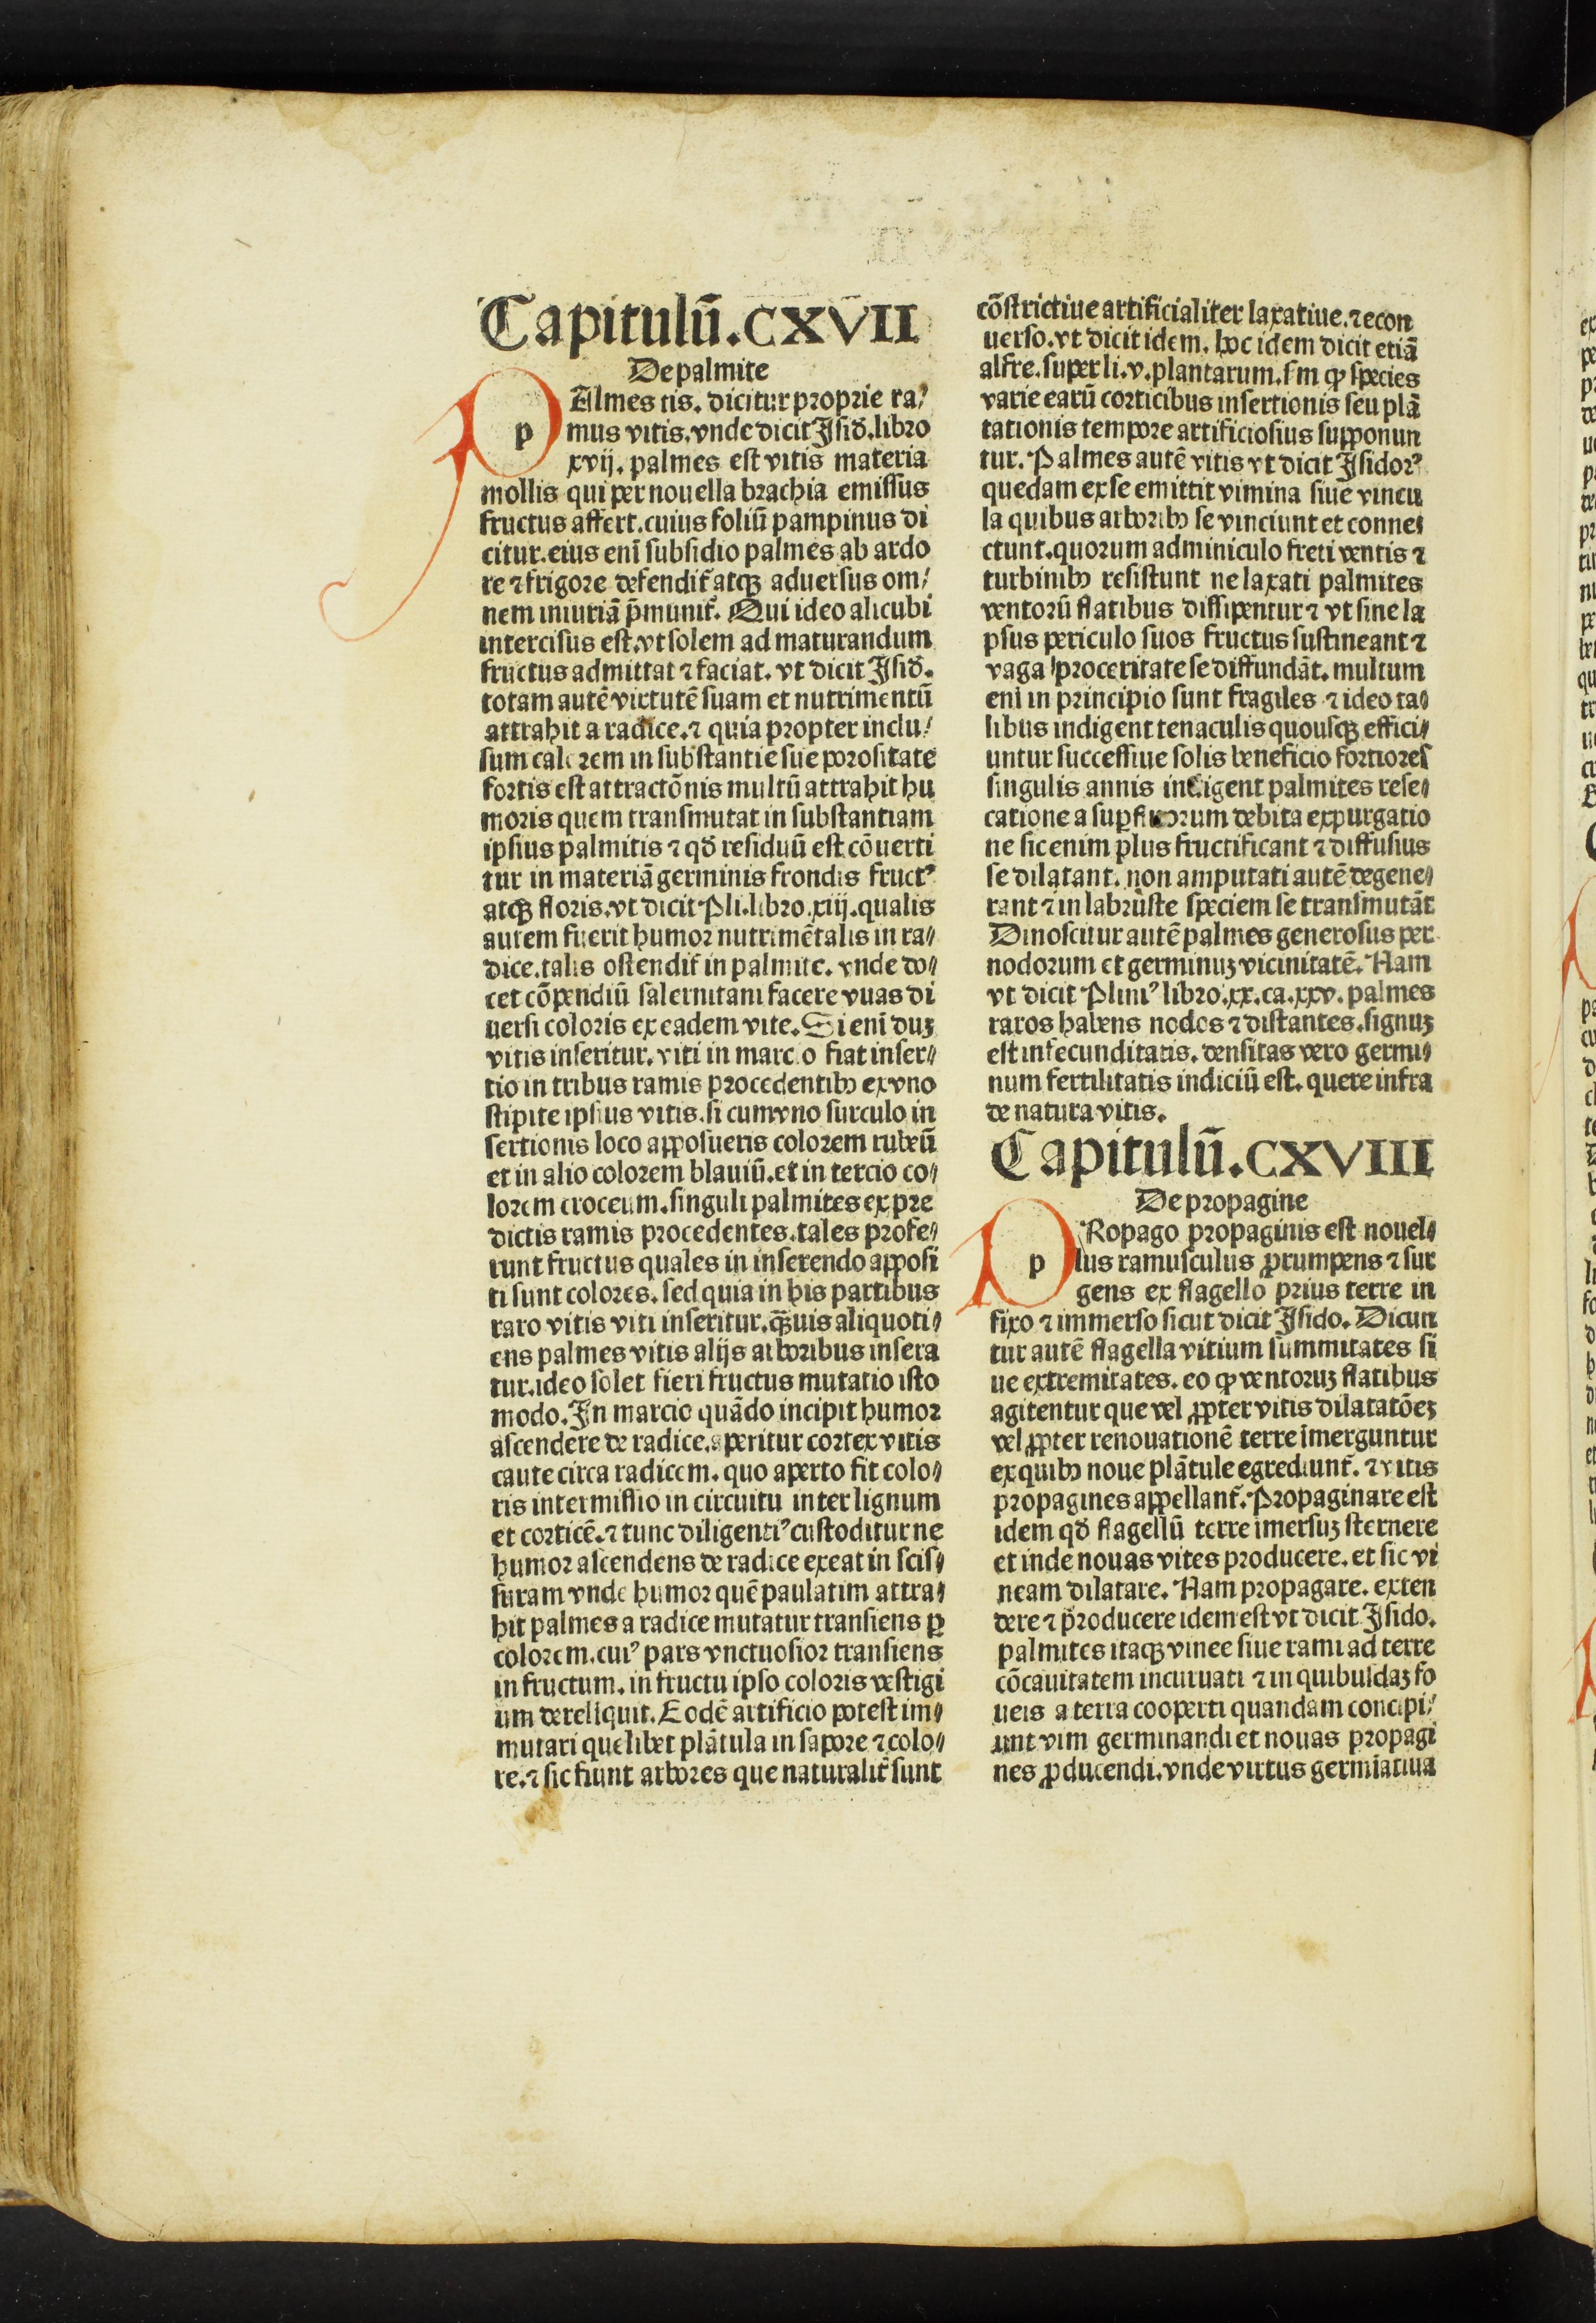 Capitulū.CXVII
De palmite
PAlmes tis. dicitur proprie ra/
mus vitis. vnde dicit Isid̄. libro
xvij. palmes est vitis materia
mollis qui per nouella brachia emissus
fructus affert. cuius foliū pampinus di
citur. eius eni subsidio palmes ab ardo
re ⁊ frigore defendit̄ atqꝫ aduersus om/
nem iniuriā p̄munit̄. Qui ideo alicubi
intercisus est. vt solem ad maturandum
fructus admittat ⁊ faciat. vt dicit Isid̄.
totam autē virtutē suam et nutrimentū
attrahit a radice. ⁊ quia propter inclu/
sum calorem in substantie sue porositate
fortis est attractōnis multū attrahit hu
moris quem transmutat in substantiam
ipsius palmitis ⁊ qd̄ residuū est cōuerti
tur in materiā germinis frondis fructꝰ
atqꝫ floris. vt dicit Pli. libro. xiij. qualis
autem fuerit humor nutrimētalis in ra/
dice. talis ostendit̄ in palmite. vnde do/
cet cōpendiū salernitani facere vuas di
uersi coloris ex eadem vite. Si eni duꝫ
vitis inseritur. viti in marcio fiat inser/
tio in tribus ramis procedentibꝫ ex vno
stipite ipsius vitis. si cum vno surculo in
sertionis loco apposueris colorem rubeū
et in alio colorem blauiū. et in tercio co/
lorem croceum. singuli palmites ex pre
dictis ramis procedentes. tales profe/
runt fructus quales in inserendo apposi
ti sunt colores. sed quia in his partibus
raro vitis viti inseritur. qꝫuis aliquoti/
ens palmes vitis alijs arboribus insera
tur. ideo solet fieri fructus mutatio isto
modo. In marcio quādo incipit humor
ascendere de radice. aperitur cortex vitis
caute circa radicem. quo aperto fit colo/
ris intermissio in circuitu inter lignum
et corticē. ⁊ tunc diligentiꝰ custoditur ne
humor ascendens de radice exeat in scis/
suram vnde humor quē paulatim attra/
hit palmes a radice mutatur transiens ꝑ
colorem. cuiꝰ pars vnctuosior transiens
in fructum. in fructu ipso coloris vestigi
um dereliquit. Eodē artificio potest im/
mutari quelibet plātula in sapore ⁊ colo/
re. ⁊ sic fiunt arbores que naturalit̄ sunt
cōstrictiue artificialiter laxatiue. ⁊ econ
uerso. vt dicit idem. hoc idem dicit etiā
alfre. super li. v. plantarum. sm ꝙ species
varie earū corticibus insertionis seu plā
tationis tempore artificiosius supponun
tur. Palmes autē vitis vt dicit Isidorꝰ
quedam ex se emittit vimina siue vincu
la quibus arboribꝫ se vinciunt et conne/
ctunt. quorum adminiculo freti ventis ⁊
turbinibꝫ resistunt ne laxati palmites
ventorū flatibus dissipentur ⁊ vt sine la
psus periculo suos fructus sustineant ⁊
vaga proceritate se diffundāt. multum
eni in principio sunt fragiles ⁊ ideo ta/
libus indigent tenaculis quousqꝫ effici/
untur successiue solis beneficio fortiores
singulis annis indigent palmites rese/
catione a suꝑfluorum debita expurgatio
ne sic enim plus fructificant ⁊ diffusius
se dilatant. non amputati autē degene/
rant ⁊ in labruste speciem se transmutāt
Dinoscitur autē palmes generosus per
nodorum et germinuꝫ vicinitatē. Nam
vt dicit Pliniꝰ libro. xx. ca. xxv. palmes
raros habens nodos ⁊ distantes. signuꝫ
est infecunditatis. densitas vero germi/
num fertilitatis indiciū est. quere infra
de natura vitis.
Capitulū.CXVIII
De propagine
PRopago propaginis est nouel/
lus ramusculus ꝓrumpens ⁊ sur
gens ex flagello prius terre in
fixo ⁊ immerso sicut dicit Isido. Dicun
tur autē flagella vitium summitates si
ue extremitates. eo ꝙ ventoruꝫ flatibus
agitentur que vel ꝓpter vitis dilatatōeꝫ
vel ꝓpter renouationē terre īmerguntur
ex quibꝫ noue plātule egrediunt̄. ⁊ vitis
propagines appellant̄. Propaginare est
idem qd̄ flagellū terre īmersuꝫ sternere
et inde nouas vites producere. et sic vi
neam dilatare. Nam propagare. exten
dere ⁊ producere idem est vt dicit Isido.
palmites itaqꝫ vinee siue rami ad terre
cōcauitatem incuruati ⁊ in quibusdaꝫ fo
ueis a terra cooperti quandam concipi/
unt vim germinandi et nouas propagi
nes ꝓducendi. vnde virtus germīatiua